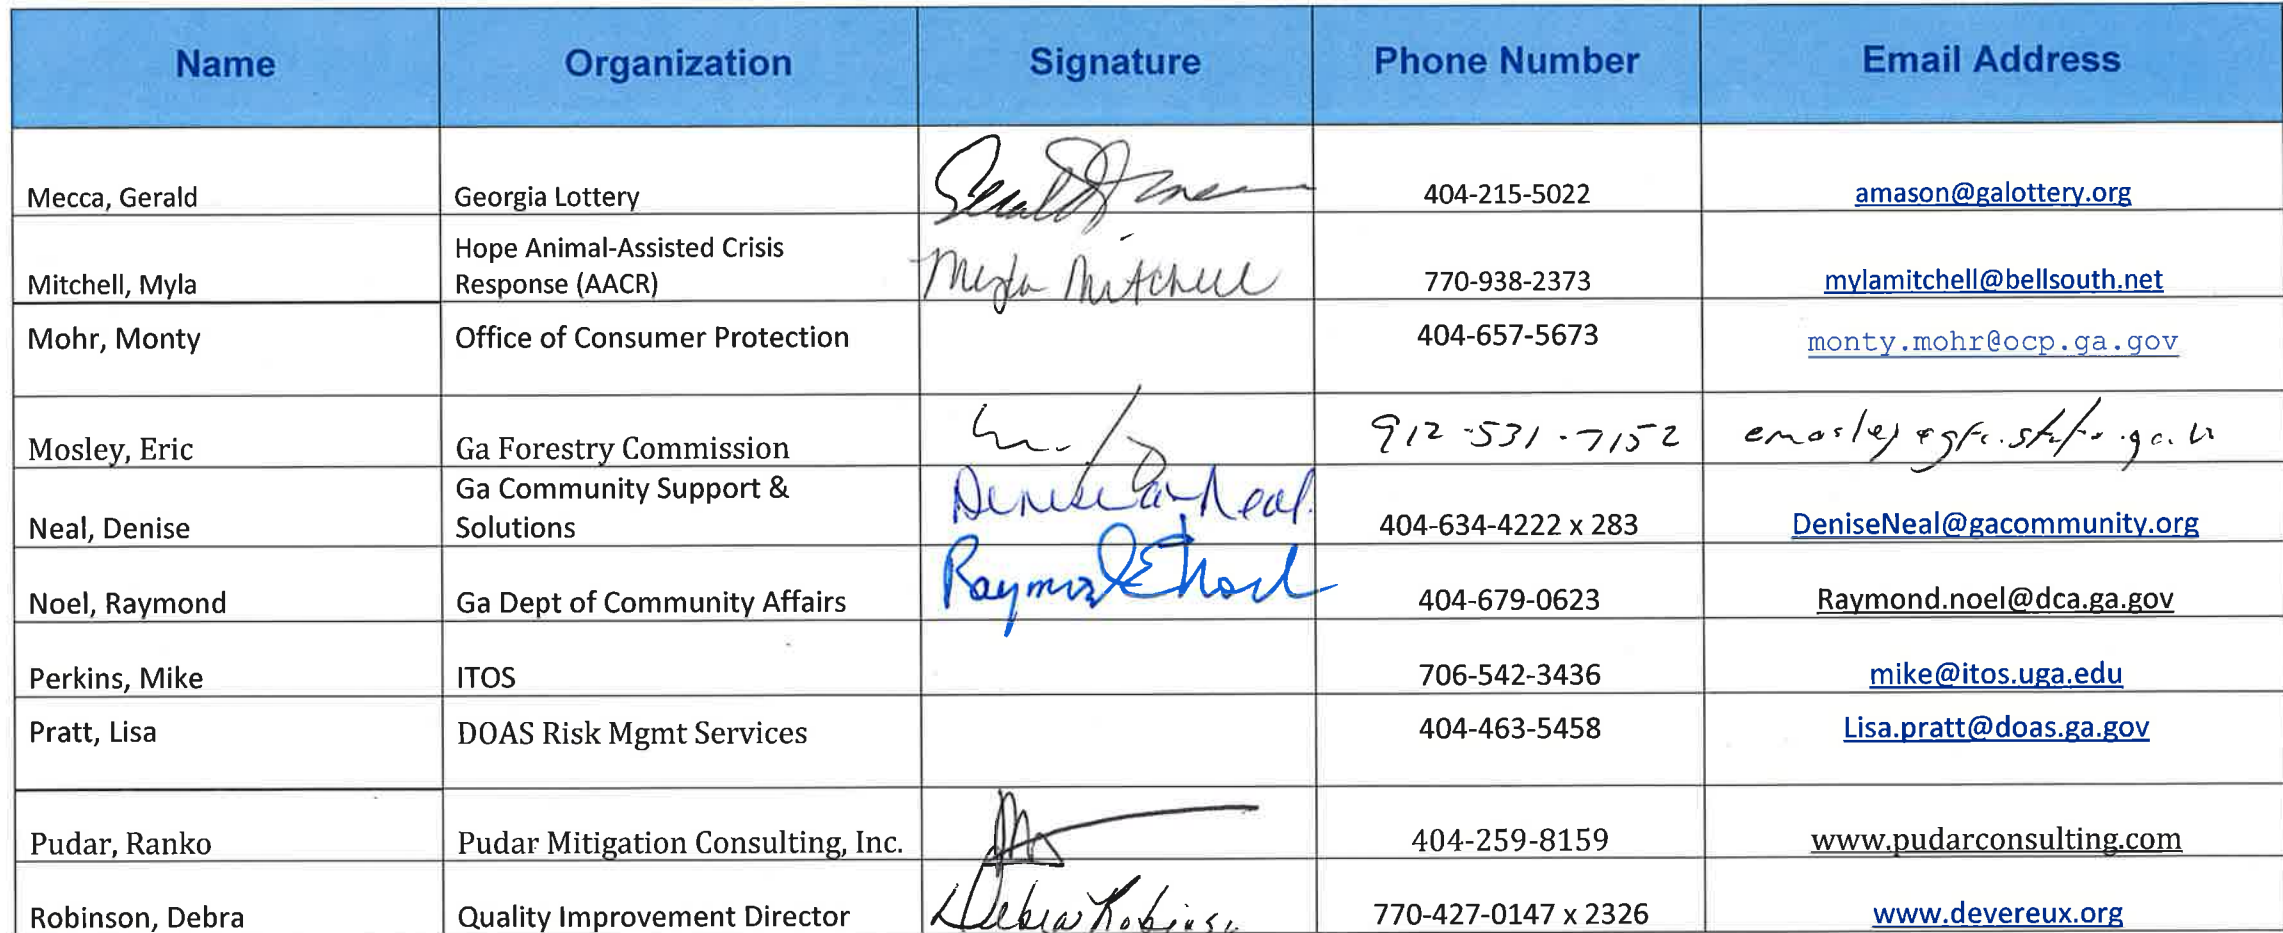 Name Organization Signature Phone Number Email Address
Mecca, Gerald Georgia Lottery 404-215-5022 amason@galottery.org
Hope Animal-Assisted Crisis
Mitchell, Myla Response (AACR) Myla Mitchell 770-938-2373 mylamitchell@bellsouth.net
Mohr, Monty Office of Consumer Protection 404-657-5673 monty.mohr@ocp.ga.gov
Mosley, Eric Ga Forestry Commission 912-531-7152
Ga Community Support &
Neal, Denise Solutions Denise A. Neal 404-634-4222 x 283 DeniseNeal@gacommunity.org
Noel, Raymond Ga Dept of Community Affairs Raymond E Noel 404-679-0623 Raymond.noel@dca.ga.gov
Perkins, Mike ITOS 706-542-3436 mike@itos.uga.edu
Pratt, Lisa DOAS Risk Mgmt Services 404-463-5458 Lisa.pratt@doas.ga.gov
Pudar, Ranko Pudar Mitigation Consulting, Inc. 404-259-8159 www.pudarconsulting.com
Robinson, Debra Quality Improvement Director Debra Robinson 770-427-0147 x 2326 www.devereux.org